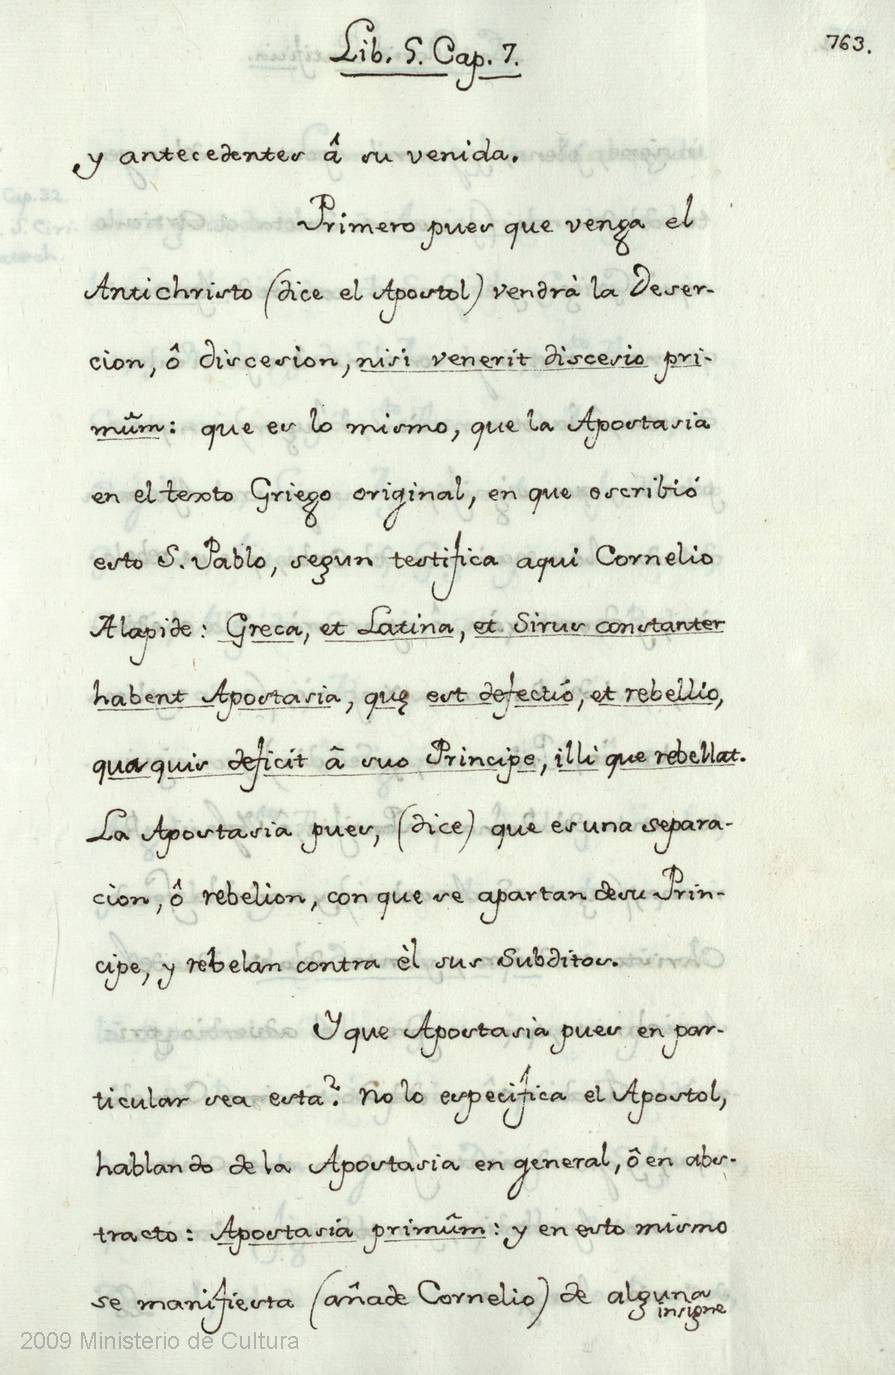 Lib. 5. Cap. 7.
763.
y antecedentes â su venida.
Primero pues que venga el
Antichristo (dice el Apostol) vendrà la Deser-
cion, ô discesion, nisi venerit discesio pri-
mũm: que es lo mismo, que la Apostasia
en el texto Griego original, en que escribió
esto S. Pablo, segun testifica aqui Cornelio
Alapide: Greca, et Latina, et Sirus constanter
habent Apostasia, quę est defectió, et rebellio,
qua quis deficit â suo Principe, illi que rebellat.
La Apostasia pues, (dice) que es una separa-
cion, ô rebelion, con que se apartan de su Prin-
cipe, y rebelan contra èl sus Subditos.
Y que Apostasia pues en par-
ticular sea esta? No lo especifica el Apostol,
hablando de la Apostasia en general, ô en abs-
tracto: Apostasia primũm: y en esto mismo
se manifiesta (añade Cornelio) de alguna
insigne
2009 Ministerio de Cultura